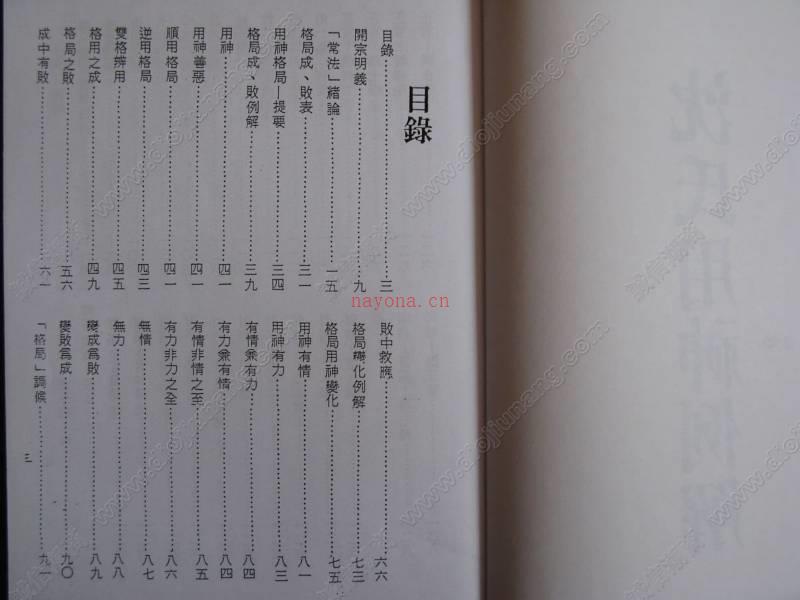 目錄
目錄 三
開宗明義 九
「常法」緒論 一五
格局成、敗表 三一
用神格局—提要 三四
格局成、敗例解 三九
用神 四一
用神善惡 四一
順用格局 四一
逆用格局 四三
雙格辨用 四五
格用之成 四九
格局之敗 五六
成中有敗 六一
敗中救應 六六
格局變化例解 七三
格局用神變化 七五
用神有情 八一
用神有力 八三
有情兼有力 八四
有力兼有情 八四
有情非情之至 八五
有力非力之全 八六
無情 八七
無力 八八
變成為敗 八九
變敗為成 九〇
「格局」調候 九一
三
沈氏用神例解
nayona.cn
www.diojiunang.com